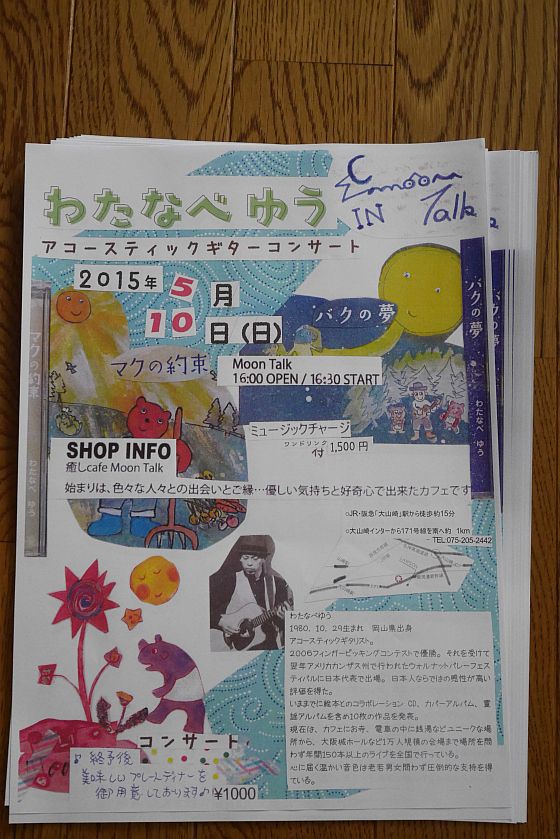 わたなべ ゆう
moon
IN Talk
アコースティックギターコンサート
2015年 5月
10日(日)
バクの夢
バクの夢
わたなべ ゆう
マクの約束
マクの約束
わたなべ ゆう
Moon Talk
16:00 OPEN / 16:30 START
ミュージックチャージ
ワンドリンク
付 1,500円
SHOP INFO
癒しcafe Moon Talk
始まりは、色々な人々との出会いとご縁…優しい気持ちと好奇心で出来たカフェです
○JR・阪急「大山崎」駅から徒歩約15分
○大山崎インターから171号線を南へ約 1km
TEL:075-205-2442
わたなべゆう
1980．10．29生まれ 岡山県出身
アコースティックギタリスト。
2006フィンガーピッキングコンテストで優勝。それを受けて
翌年アメリカカンザス州で行われたウォルナットバレーフェス
ティバルに日本代表で出場。日本人ならではの感性が高い
評価を得た。
いままでに絵本とのコラボレーション CD、カバーアルバム、童
謡アルバムを含め10枚の作品を発表。
現在は、カフェにお寺、電車の中に銭湯などユニークな場
所から、大阪城ホールなど1万人規模の会場まで場所を問
わず年間150本以上のライブを全国で行っている。
心に届く温かい音色は老若男女問わず圧倒的な支持を得
ている。
コンサート
♪ 終予後
美味しいプレートディナーを
御用意しております♪ ¥1000